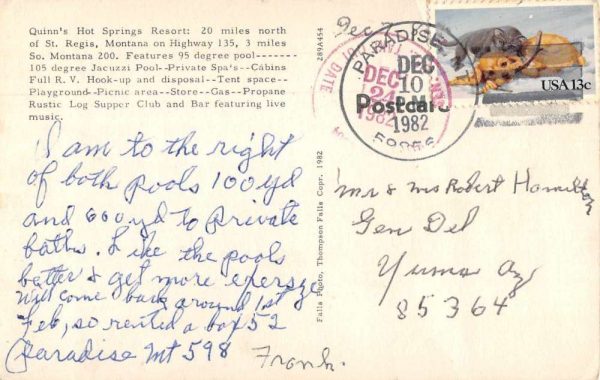 Quinn's Hot Springs Resort: 20 miles north
of St. Regis, Montana on Highway 135, 3 miles
So. Montana 200. Features 95 degree pool------
105 degree Jacuzzi Pool--Private Spa's--Cabins
Full R. V. Hook-up and disposal--Tent space--
Playground--Picnic area--Store--Gas--Propane
Rustic Log Supper Club and Bar featuring live
music.
I am to the right
of both pools 100 yd
and 600 yd to private
baths. Like the pools
better & get more exersize
Will come back around 1st
Feb, so rented a box 52
Paradise Mt 598
Frank.
289A454
Falls Photo, Thompson Falls Copr. 1982
Postcard
PARADISE,
DEC
10
PM
1982
DATE
DEC
24
1982
USA 13c
Mr & Ms Robert Hamilton
Gen Del
Yuma Az
85364